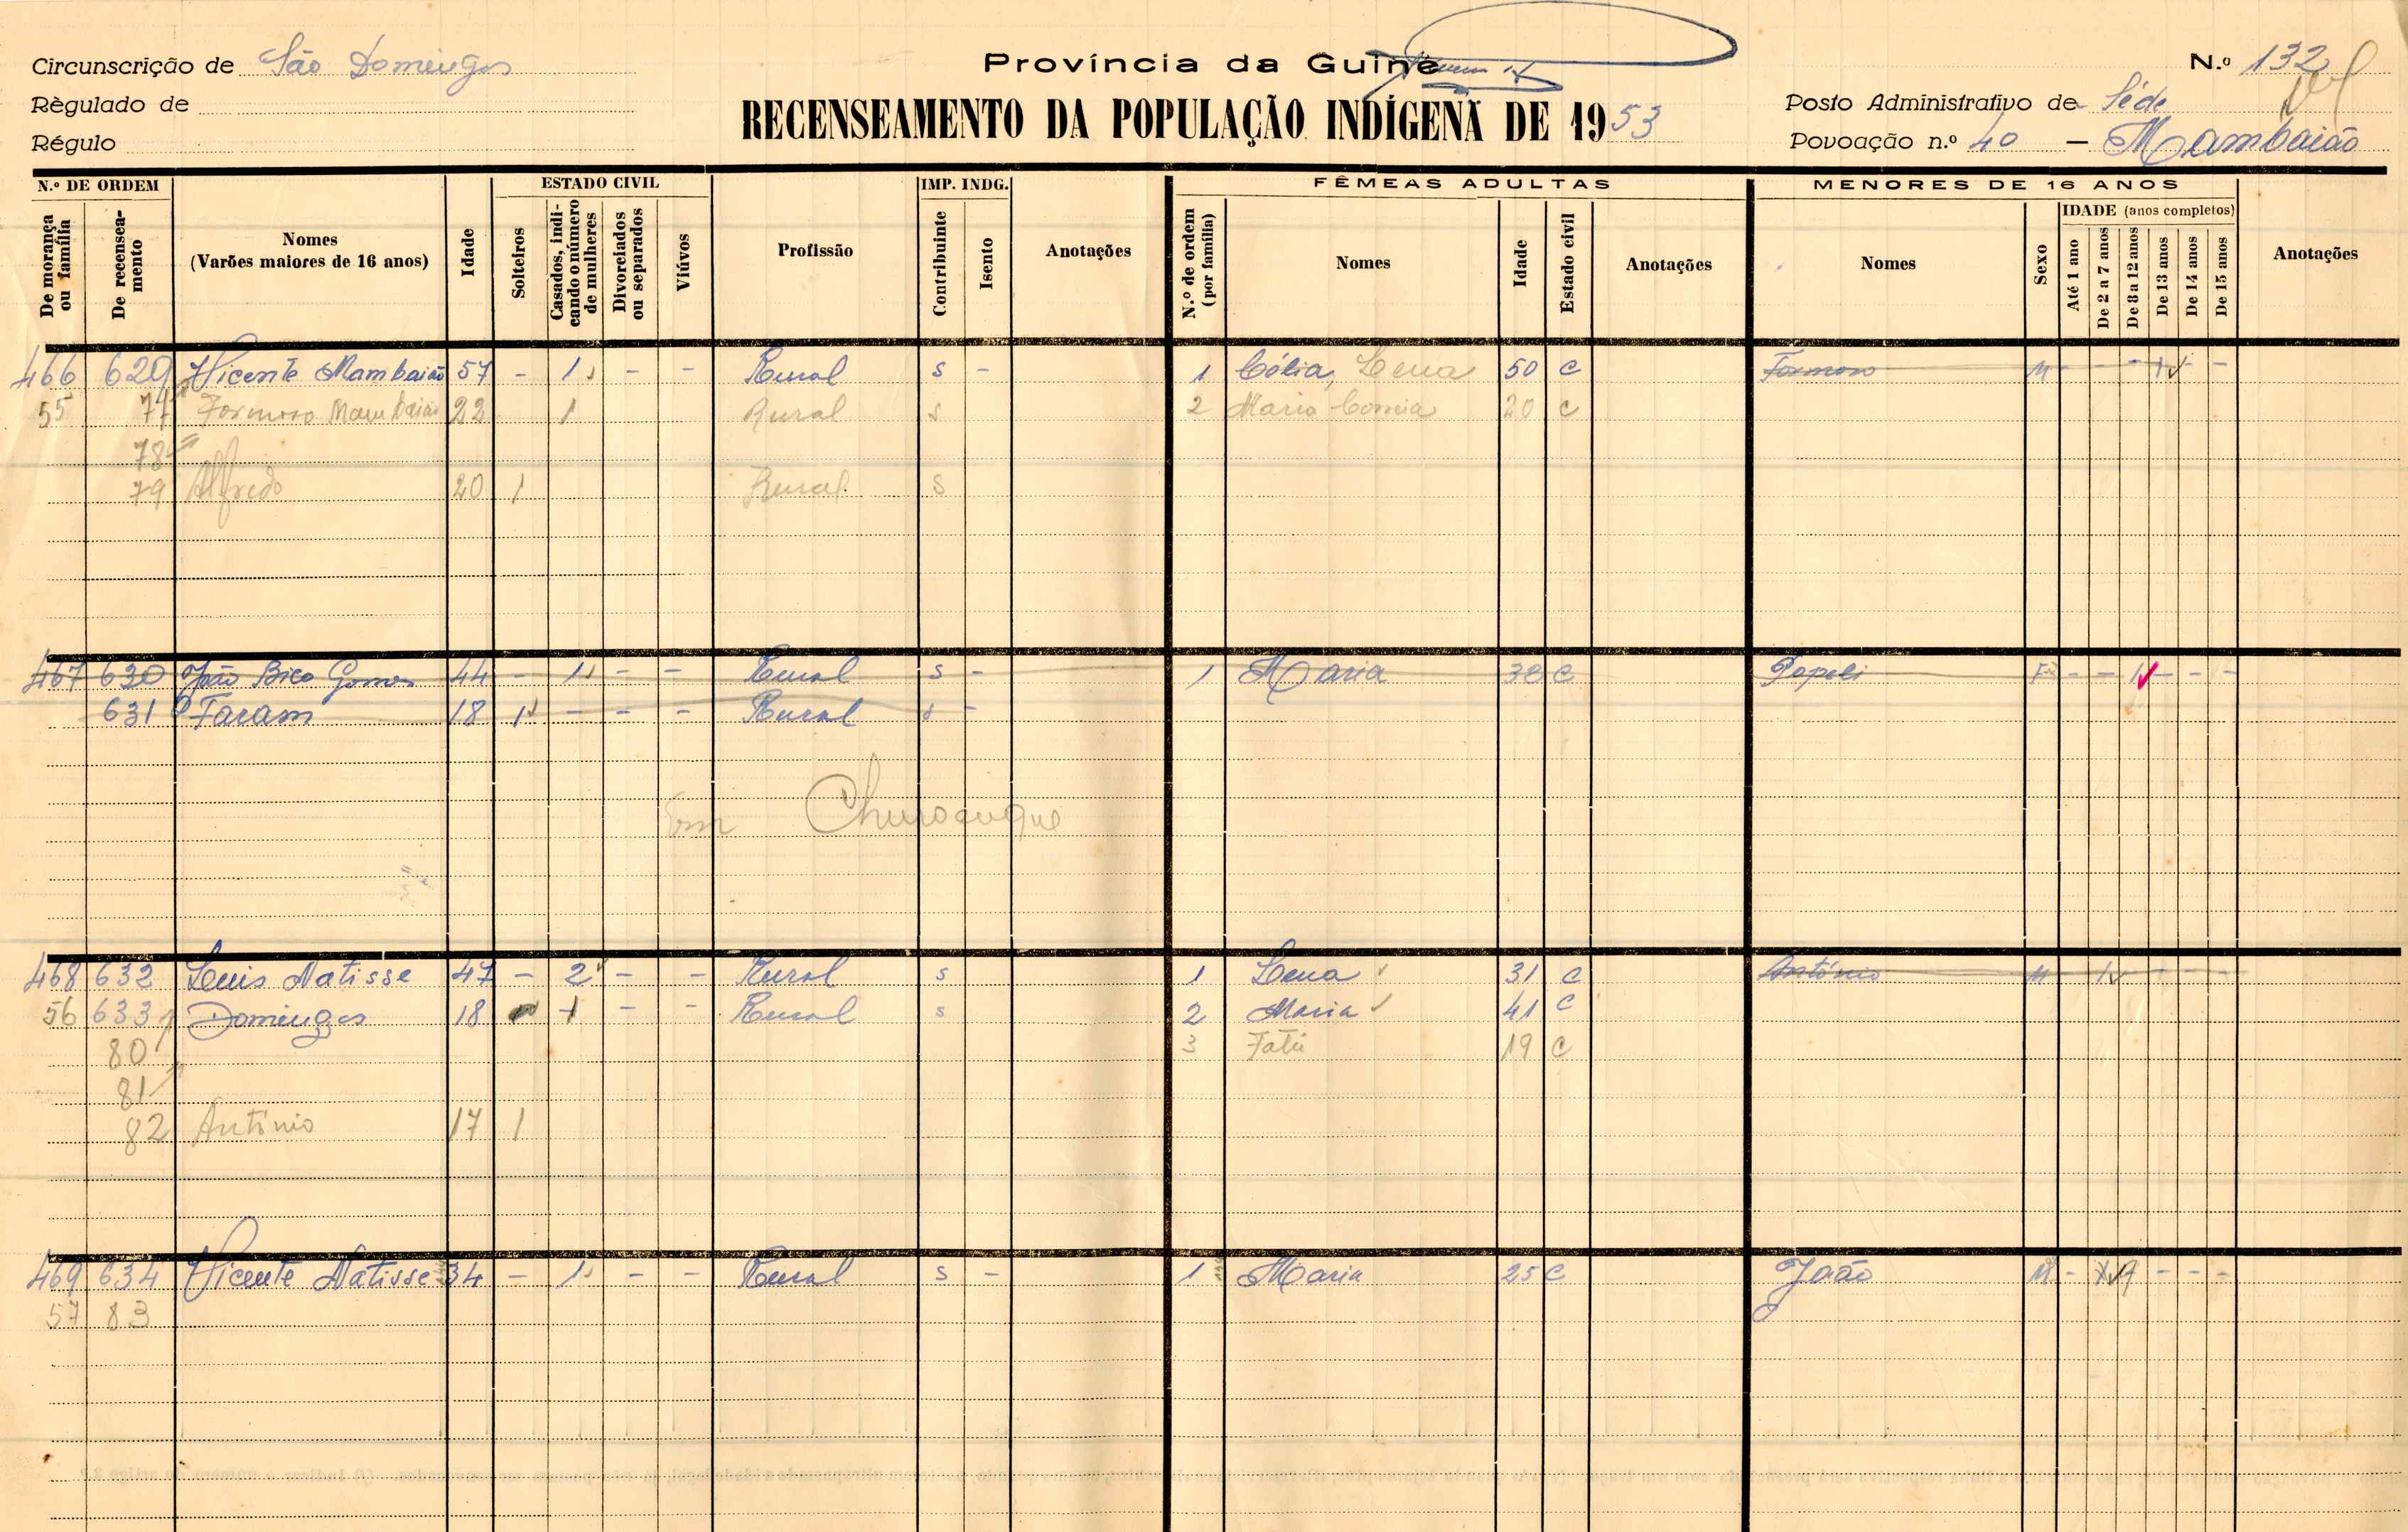 Circunscrição de São Domingos
Província da Guiné
N.º 132
Règulado de
RECENSEAMENTO DA POPULAÇÃO INDÍGENA DE 1953
Posto Administrativo de Séde
Régulo
Povoação n.º 40 — Mambaião
N.º DE ORDEM
De morança ou família
De recenseamento
Nomes
(Varões maiores de 16 anos)
Idade
ESTADO CIVIL
Solteiros
Casados, indicando o número de mulheres
Divorciados ou separados
Viúvos
Profissão
IMP. INDG.
Contribuinte
Isento
Anotações
FÊMEAS ADULTAS
N.º de ordem (por família)
Nomes
Idade
Estado civil
Anotações
MENORES DE 16 ANOS
Nomes
Sexo
IDADE (anos completos)
Até 1 ano
De 2 a 7 anos
De 8 a 12 anos
De 13 anos
De 14 anos
De 15 anos
Anotações
466 629 Vicente Mambaião 57 - 1 - - Rural s - 1 Cólia, Lena 50 C Formoso M - - - 1 - -
55 77 Formoso Mambaião 22 1 Rural s 2 Maria Correia 20 C
78
79 Alfredo 20 1 Rural s
467 630 João Bico Gomes 44 - 1 - - Rural s - 1 Maria 38 C Popoli F - - 1 - - -
631 Faram 18 1 - - - Rural s -
Em
468 632 Luis Natisse 47 - 2 - - Rural s 1 Lena 31 C António M - 1 - - -
56 633 Domingos 18 1 - - Rural s 2 Maria 41 C
80 3 Fatú 19 C
81
82 António 17 1
469 634 Vicente Natisse 34 - 1 - - Rural s - 1 Maria 25 C João M - 1 9 - - -
57 83